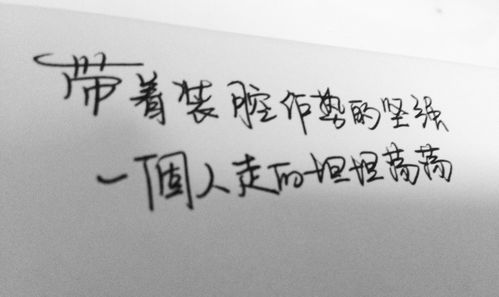 带着装腔作势的坚强
一個人走的坦坦荡荡